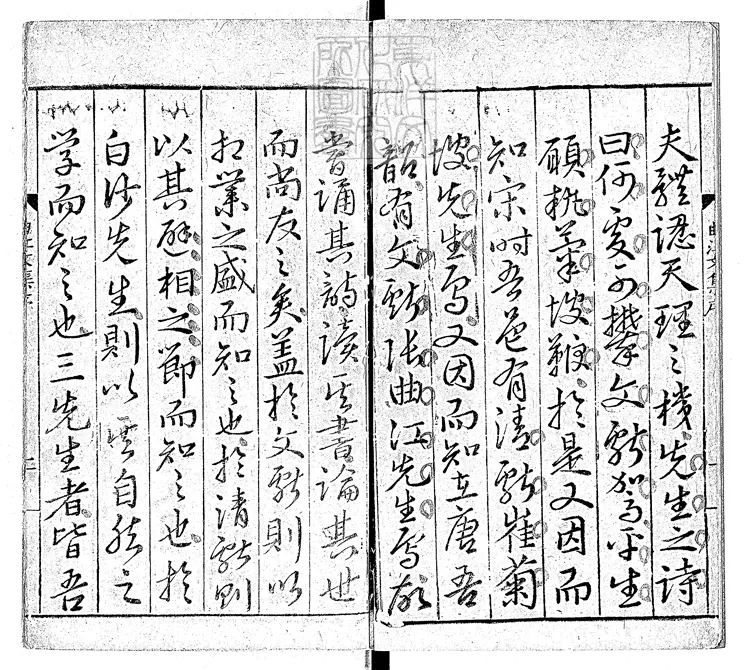 夫體認天理之機先生之詩
曰何處可攀文獻駕平生
願執菊坡鞭於是又因而
知宋時吾邑有清獻崔菊
坡先生焉又因而知在唐吾
韶有文獻張曲江先生焉故
嘗誦其詩讀其書論其世
而尚友之矣蓋於文獻則以
相業之盛而知之也於清獻則
以其避相之節而知之也於
白沙先生則以其自然之
学而知之也三先生者皆吾